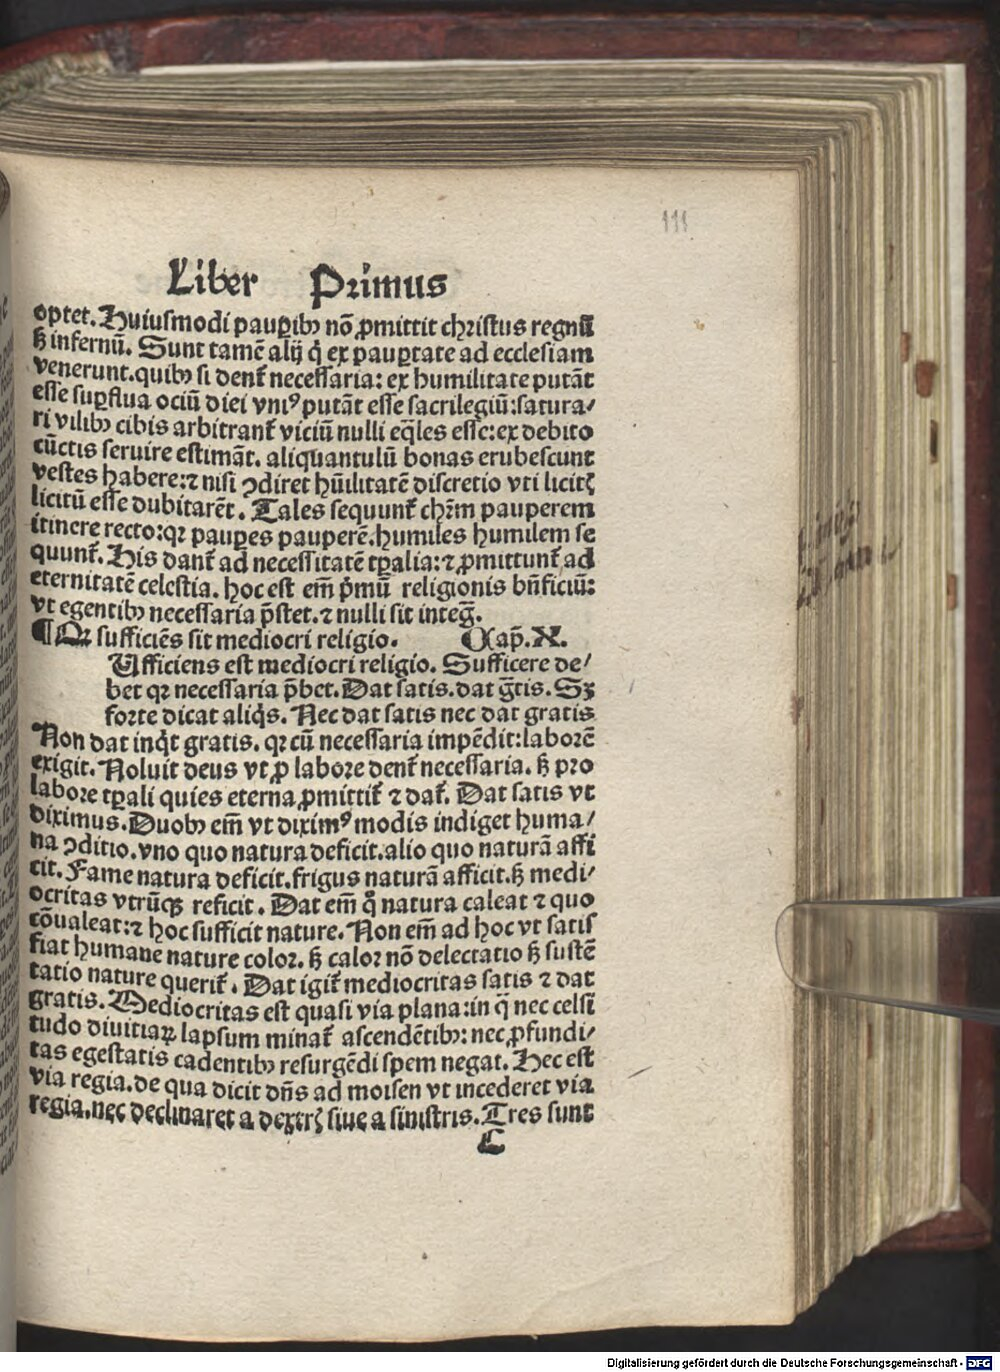 111
Liber Primus
optet. Huiusmodi paupib9 nō ꝓmittit christus regnū
ß infernū. Sunt tamē alij q̇ ex paup̱tate ad ecclesiam
venerunt. quib9 si dent᷑ necessaria: ex humilitate putāt
esse sup̱flua ociū diei vni9 putāt esse sacrilegiū: satura/
ri vilib9 cibis arbitrant᷑ viciū nulli eq̄les esse: ex debito
cūctis seruire estimāt. aliquantulū bonas erubescunt
vestes habere: ⁊ nisi ꝯdiret hūilitatē discretio vti licitꝭ
licitū esse dubitarēt. Tales sequunt᷑ chr̄m pauperem
itinere recto: qꝛ paup̱es pauperē. humiles humilem se
quunt᷑. His dant᷑ ad necessitatē tp̱alia: ⁊ ꝓmittunt᷑ ad
eternitatē celestia. hoc est em̄ p̄mū religionis bn̄ficiū:
vt egentib9 necessaria p̄stet. ⁊ nulli sit inteḡ.
¶ Qꝛ sufficiēs sit mediocri religio. Cap̄. X.
Ufficiens est mediocri religio. Sufficere de/
bet qꝛ necessaria p̄bet. Dat satis. dat gr̄tis. Sꝫ
forte dicat aliq̇s. Nec dat satis nec dat gratis
Non dat inq̇t gratis. qꝛ cū necessaria impēdit: laborē
exigit. Noluit deus vt ꝓ labore dent᷑ necessaria. ß pro
labore tp̱ali quies eterna ꝓmittit᷑ ⁊ dat᷑. Dat satis vt
diximus. Duob9 em̄ vt dixim9 modis indiget huma/
na ꝯditio. vno quo natura deficit. alio quo naturā affi
cit. Fame natura deficit. frigus naturā afficit. ß medi/
ocritas vtrūqꝫ reficit. Dat em̄ q̊ natura caleat ⁊ quo
cōualeat: ⁊ hoc sufficit nature. Non em̄ ad hoc vt satis
fiat humane nature color. ß calor nō delectatio ß sustē
tatio nature querit᷑. Dat igit᷑ mediocritas satis ⁊ dat
gratis. Mediocritas est quasi via plana: in q̄ nec celsi
tudo diuitiaꝝ lapsum minat᷑ ascendētib9: nec ꝓfundi/
tas egestatis cadentib9 resurgēdi spem negat. Hec est
via regia. de qua dicit dn̄s ad moisen vt incederet via
regia. nec declinaret a dextrꝭ siue a sinistris. Tres sunt
C
Digitalisierung gefördert durch die Deutsche Forschungsgemeinschaft - DFG